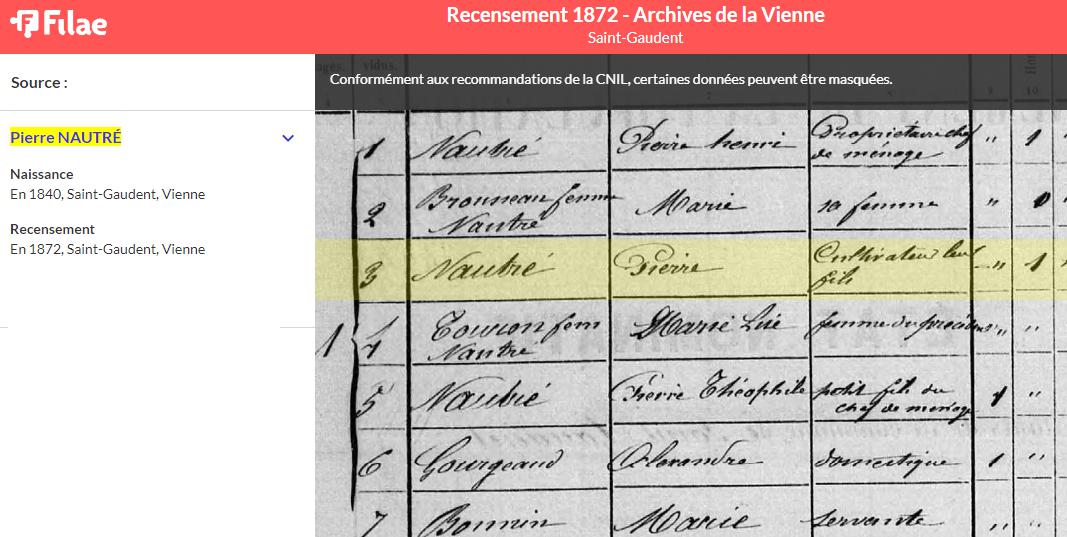 Filae
Recensement 1872 - Archives de la Vienne
Saint-Gaudent
Source :
Conformément aux recommandations de la CNIL, certaines données peuvent être masquées.
Pierre NAUTRÉ
Naissance
En 1840, Saint-Gaudent, Vienne
Recensement
En 1872, Saint-Gaudent, Vienne
vidus.
9 10
1 Nautré Pierre henri Propriétaire chef „ 1
de ménage
2 Bronneau femme Marie sa femme „
Nautré
3 Nautré Pierre Cultivateur leur „ 1
fils
1 4 fem Marie femme du „ „
Nautré
5 Nautré Pierre Théophile petit fils du 1 „
chef de ménage
6 Gourgeaud Alexandre domestique 1 „
7 Bonnin Marie servante „ „